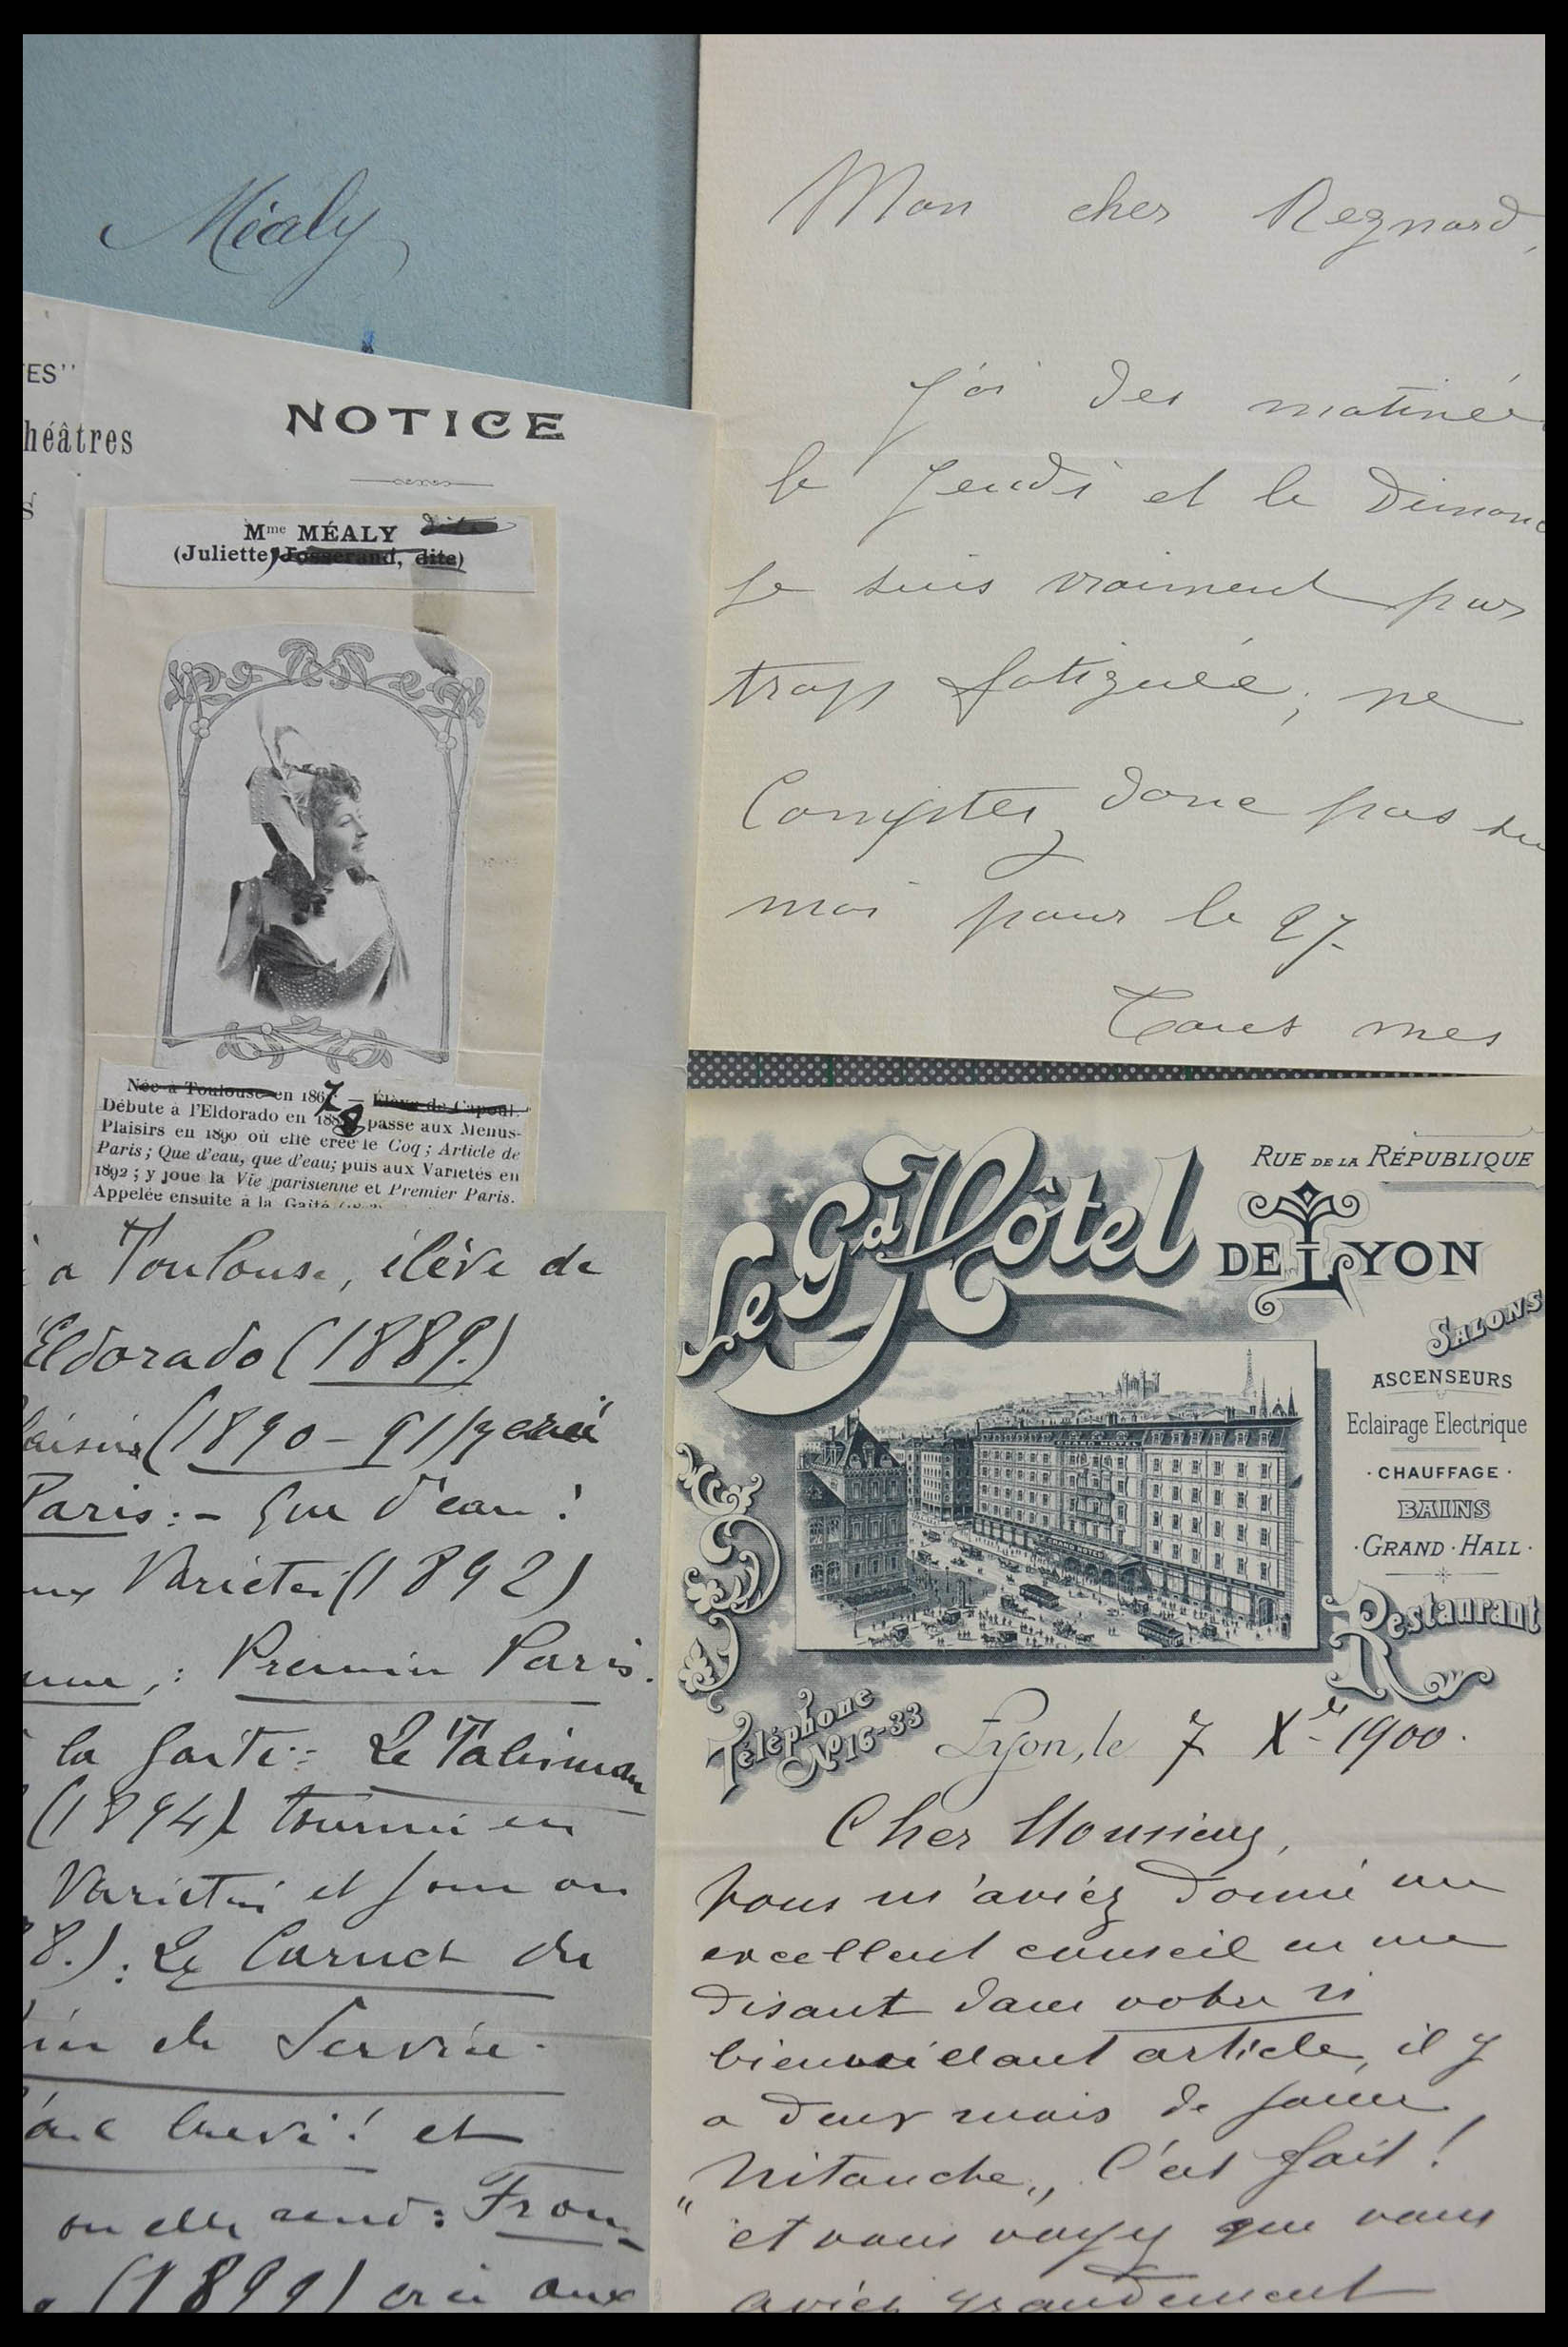 Méaly
ES"
héâtres
s
NOTICE
Mme MÉALY dite
(Juliette) Josserand, dite)
Née à Toulouse en 1867 — Élève de Capoul.
Débute à l'Eldorado en 1888 passe aux Menus-
Plaisirs en 1890 où elle crée le Coq ; Article de
Paris ; Que d'eau, que d'eau; puis aux Variétés en
1892 ; y joue la Vie parisienne et Premier Paris.
Appelée ensuite à la Gaîté
a Toulouse, élève de
Eldorado (1889.)
laisirs (1890-91) y créé
Paris :- Que d'eau !
aux Varietés (1892)
enne ; : Premier Paris.
la Gaité : Le Talisman
(1894) tournée en
Varietés et joue au
8.) : Le Carnet du
de Service.
brevé ! et
ou elle : Frou-
(1899) crée aux
Mon cher Regnard,
J'ai des matinée
le Jeudi et le Diman
je suis vraiment par
trop fatiguée ; ne
Comptez donc pas su
moi pour le 27
Tous mes
Le Gd Hôtel DE LYON
RUE DE LA RÉPUBLIQUE
SALONS
ASCENSEURS
Eclairage Electrique
· CHAUFFAGE ·
BAINS
· GRAND · HALL ·
Restaurant
GRAND HOTEL
GRAND HOTEL
Téléphone
No 16-33
Lyon, le 7 Xre 1900.
Cher Monsieur,
Vous m'aviez donné un
excellent conseil en me
disant dans votre si
bienveillant article, il y
a deux mois de jouer
"Nitouche", C'est fait !
et vous voyez que vous
aviez grandement